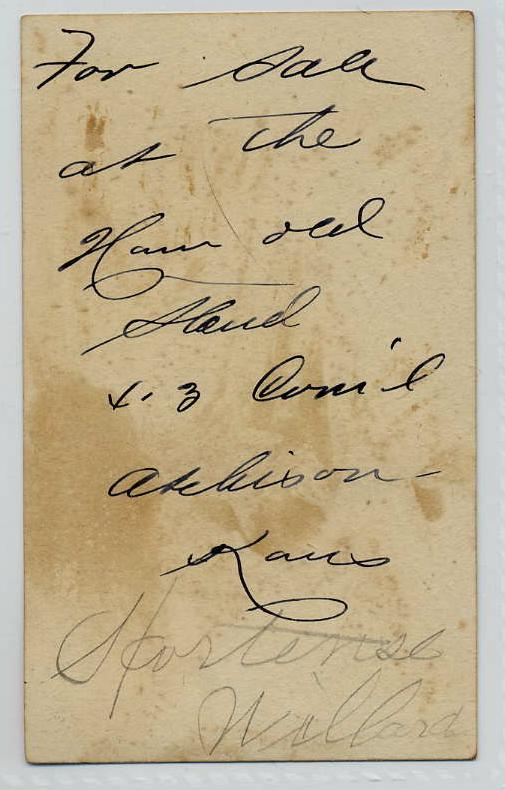 For Sale
at the
Ham old
Stand
Com'l
Atchison-
Kans
Hortense
Willard